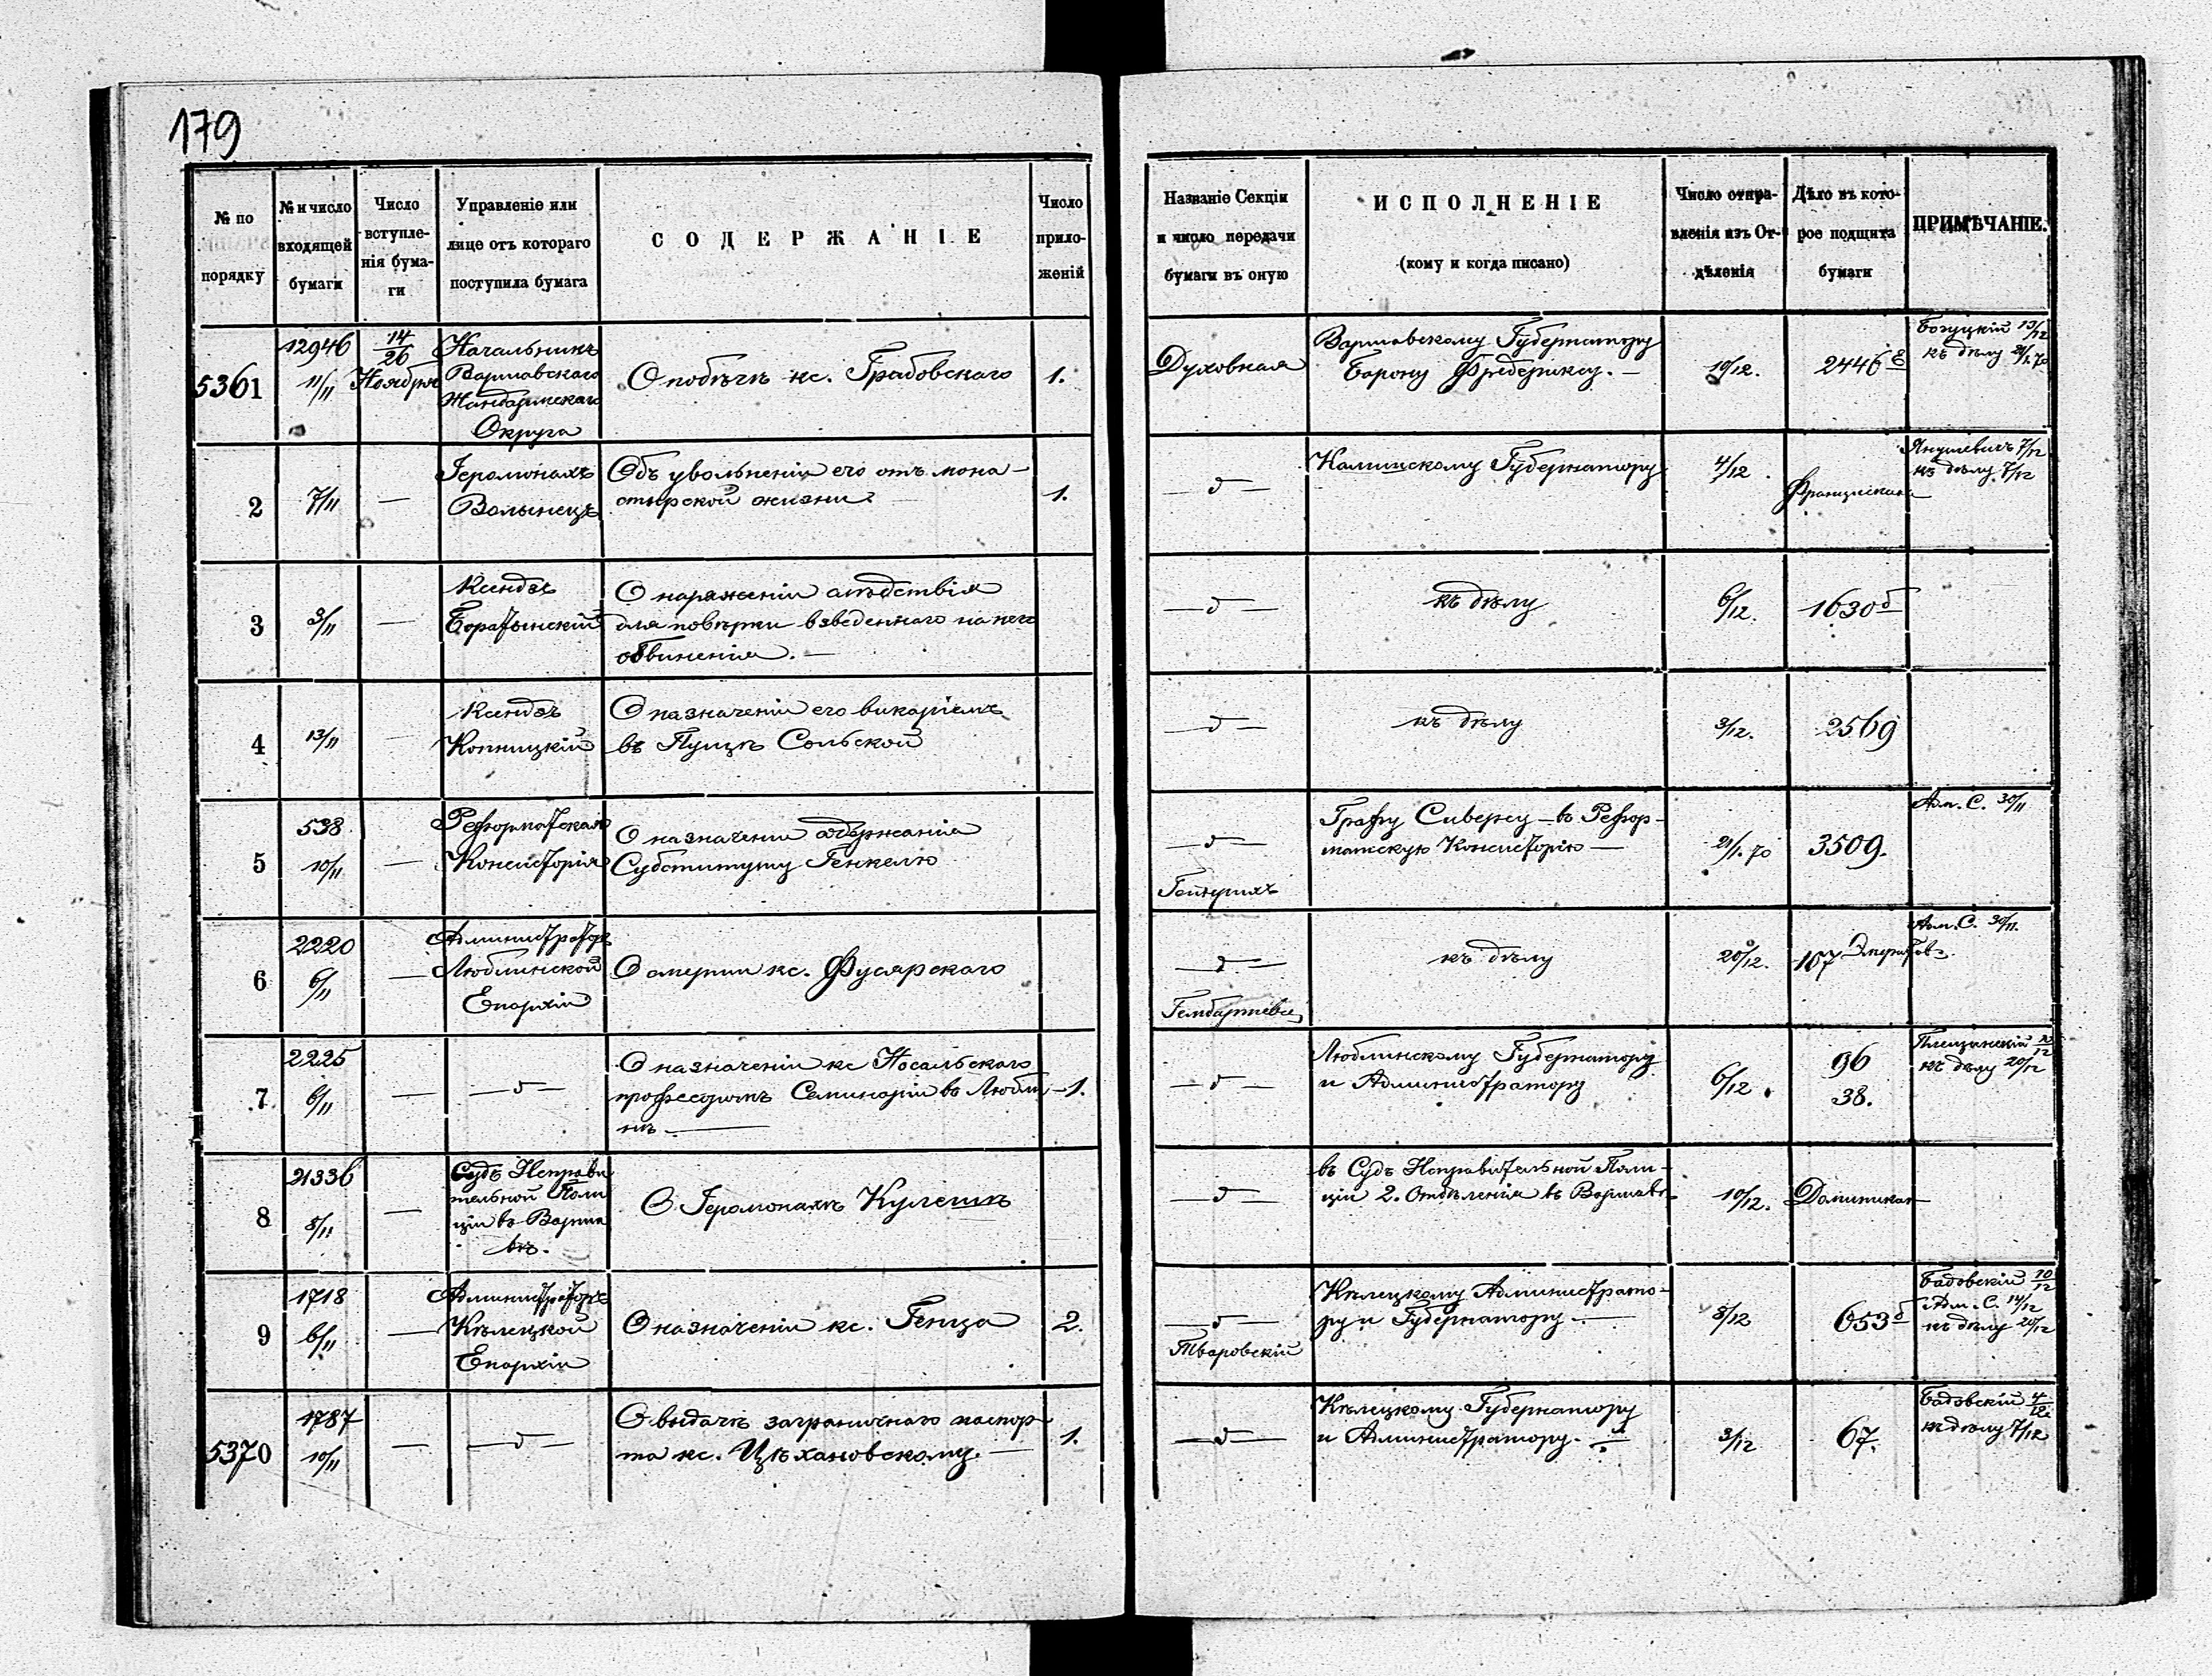 179
№ по порядку
№ и число входящей бумаги
Число вступле-
нія бума-
ги
Управленіе или
лице отъ котораго
поступила бумага
СОДЕРЖАНІЕ
Число
прило-
женій
Названіе Секціи
и число передачи
бумаги въ оную
ИСПОЛНЕНІЕ
(кому и когда писано)
Число отпра-
вленія изъ От-
дѣленія
Дѣло въ кото-
рое подшита
бумаги
ПРИМѢЧАНІЕ.
5361
12946
11/11
14/26
Ноября
Начальникъ
Варшавскаго
Жандармскаго
Округа
О побѣгѣ кс. Грабовскаго
1.
Духовная
Варшавскому Губернатору
Барону Фредериксу. —
10/12.
2446 в
Богуцкій 13/12
къ дѣлу 21/1 70
2
7/11
—
Іеромонахъ
Волынецъ
Объ увольненіи его отъ мона-
стырской жизни
1.
— д —
Калишскому Губернатору
4/12.
Францискан
Янушевичъ 7/12
къ дѣлу 7/12
3
3/11
—
Ксендзъ
Боратынскій
О наряженіи слѣдствія
для повѣрки взведеннаго на него
обвиненія. —
— д —
къ дѣлу
6/12.
1630 б
4
13/11
—
Ксендзъ
Копницкій
О назначеніи его викаріемъ
въ Пущѣ Сольской
— д —
къ дѣлу
3/12.
2569
5
538
10/11
—
Реформатская
Консисторія
О назначеніи содержанія
Субституту Генкелю
— д —
Графу Сиверсу — въ Рефор-
матскую Консисторію —
21/1. 70
3509.
Адм. С. 30/11
6
2220
6/11
—
Администраторъ
Люблинской
Епархіи
О смерти кс. Фусярскаго
— д —
къ дѣлу
20/12.
107
Эмеритов.
Адм. С. 30/11.
7.
2225
6/11
—
— д —
О назначеніи кс Носальскаго
профессоромъ Семинаріи въ Любли
нѣ —
1.
— д —
Люблинскому Губернатору
и Администратору
6/12.
96
38.
къ дѣлу 20/12
8
21336
5/11
—
Судъ Исправи
тельной Поли
ціи въ Варша
вѣ.
О Іеромонахѣ Кулешѣ
— д —
въ Судъ Исправительной Поли-
ціи 2. Отдѣленія въ Варшавѣ
10/12.
Доминикан
9
1718
6/11
—
Администраторъ
Кѣлецкой
Епархіи
О назначеніи кс. Генца
2.
— д —
Тваровскій
Кѣлецкому Администрато-
ру и Губернатору —
8/12
653 б
Бадовскій 10/12
Адм. С. 14/12
къ дѣлу 20/12
5370
1787
10/11
—
— д —
О выдачѣ заграничнаго паспор
та кс. Цѣхановскому. —
1.
— д —
Кѣлецкому Губернатору
и Администратору. —
3/12
67.
Бадовскій 4/12
къ дѣлу 7/12